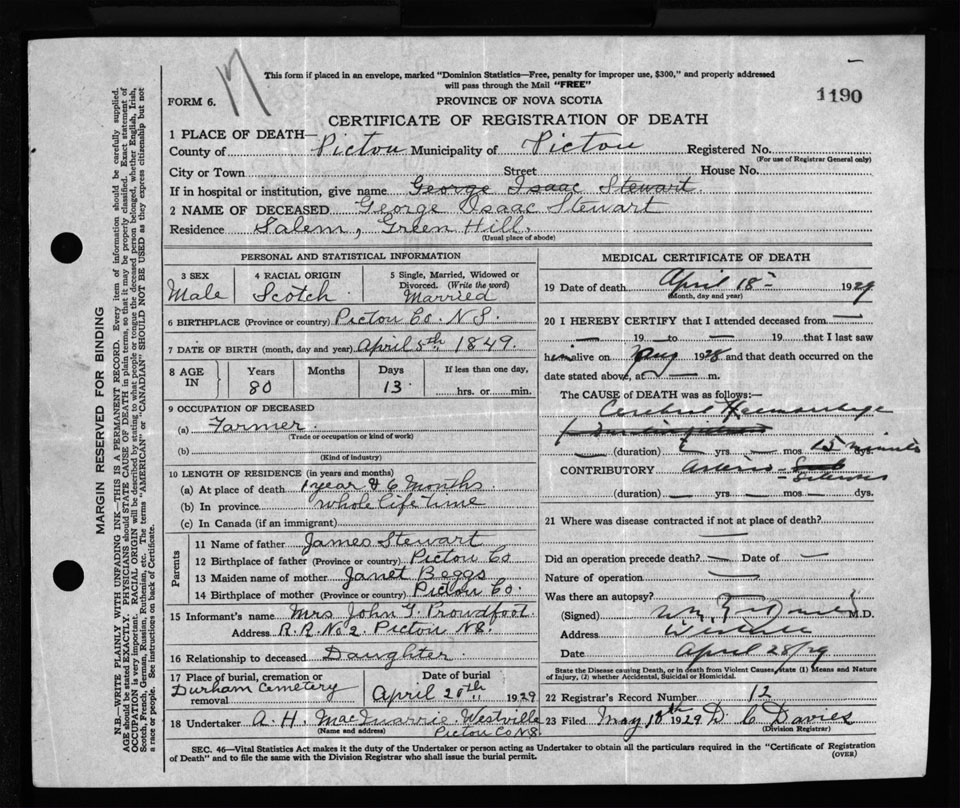 17
This form if placed in an envelope, marked "Dominion Statistics—Free, penalty for improper use, $300," and properly addressed
will pass through the Mail "FREE"
1190
FORM 6.
PROVINCE OF NOVA SCOTIA
CERTIFICATE OF REGISTRATION OF DEATH
1 PLACE OF DEATH—
County of Pictou Municipality of Pictou Registered No.
(For use of Registrar General only)
City or Town Street House No.
If in hospital or institution, give name George Isaac Stewart
2 NAME OF DECEASED George Isaac Stewart
Residence Salem, Green Hill,
(Usual place of abode)
PERSONAL AND STATISTICAL INFORMATION
3 SEX 4 RACIAL ORIGIN 5 Single, Married, Widowed or
Divorced. (Write the word)
Male Scotch Married
6 BIRTHPLACE (Province or country) Pictou Co. N.S.
7 DATE OF BIRTH (month, day and year) April 5th 1849.
8 AGE IN Years Months Days If less than one day,
80 13 hrs. or min.
9 OCCUPATION OF DECEASED
(a) Farmer.
(Trade or occupation or kind of work)
(b)
(Kind of industry)
10 LENGTH OF RESIDENCE (in years and months)
(a) At place of death 1 year & 6 months
(b) In province whole life time
(c) In Canada (if an immigrant)
Parents
11 Name of father James Stewart
12 Birthplace of father (Province or country) Pictou Co
13 Maiden name of mother Janet Beggs
14 Birthplace of mother (Province or country) Pictou Co.
15 Informant's name Mrs John G. Prowdfoot
Address R.R. No 2. Pictou N.S.
16 Relationship to deceased Daughter.
17 Place of burial, cremation or removal Date of burial
Durham Cemetery April 20th 1929
18 Undertaker A. H. MacQuarrie Westville
(Name and address) Pictou Co N.S.
MEDICAL CERTIFICATE OF DEATH
19 Date of death April 18 1929
(Month, day and year)
20 I HEREBY CERTIFY that I attended deceased from —
— 19 to — 19 that I last saw
him alive on 1928 and that death occurred on the
date stated above, at — m.
The CAUSE of DEATH was as follows:—
Cerebral Haemorrhage
(duration) yrs. mos 15 minutes dys.
CONTRIBUTORY Arterio-Sclerosis
(duration) — yrs. — mos. — dys.
21 Where was disease contracted if not at place of death?
—
Did an operation precede death? — Date of —
Nature of operation —
Was there an autopsy? —
(Signed) M.D.
Address
Date April 28/29
State the Disease causing Death, or in death from Violent Causes, state (1) Means and Nature
of Injury, (2) whether Accidental, Suicidal or Homicidal.
22 Registrar's Record Number 12
23 Filed May 18th 1929 D. C Davies
(Division Registrar)
SEC. 46—Vital Statistics Act makes it the duty of the Undertaker or person acting as Undertaker to obtain all the particulars required in the "Certificate of Registration
of Death" and to file the same with the Division Registrar who shall issue the burial permit.
(OVER)
MARGIN RESERVED FOR BINDING
N.B.—WRITE PLAINLY WITH UNFADING INK—THIS IS A PERMANENT RECORD. Every item of information should be carefully supplied.
AGE should be stated EXACTLY. PHYSICIANS should STATE CAUSE OF DEATH in plain terms, so that it may be properly classified. Exact statement of
OCCUPATION is very important. RACIAL ORIGIN will be described by stating to what people or tongue the deceased person belonged, whether English, Irish,
Scotch, French, German, Russian, Ruthenian, etc. The terms "AMERICAN" or "CANADIAN" SHOULD NOT BE USED as they express citizenship but not
a race or people. See instructions on back of Certificate.